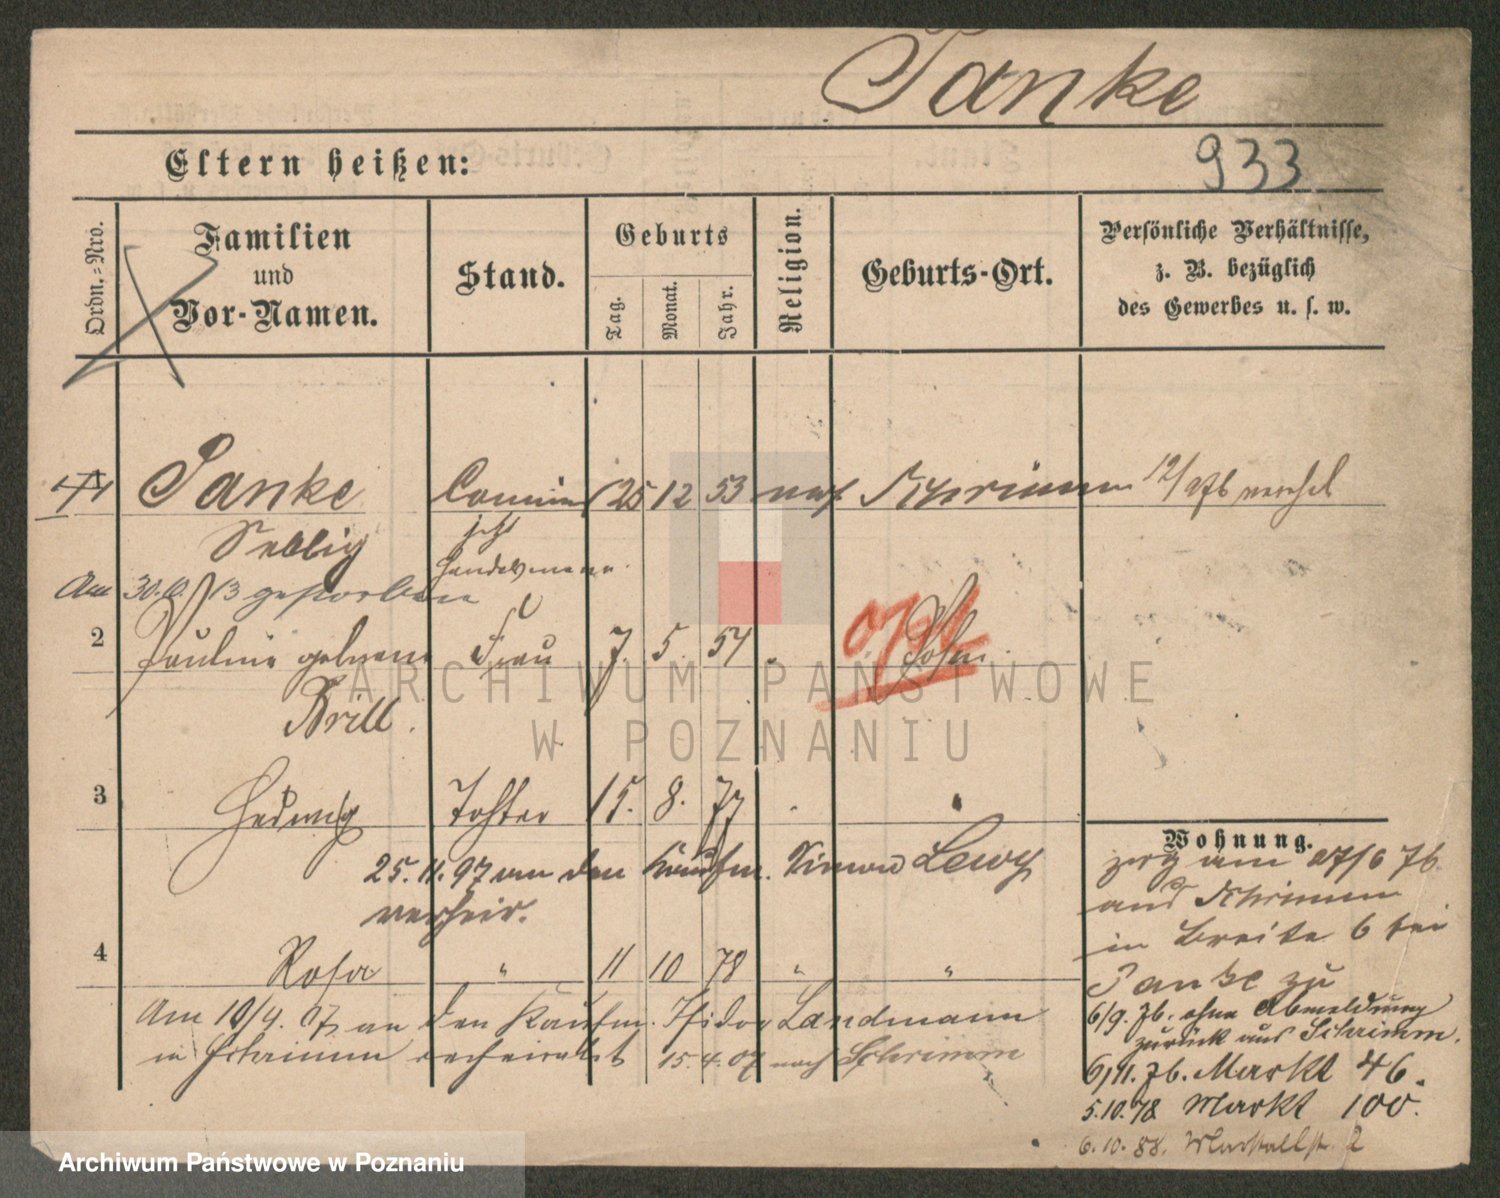 Sanke
933
Eltern heißen:
Ordn.=Nro.
Familien
und
Vor-Namen.
Stand.
Geburts
Tag.
Monat.
Jahr.
Religion.
Geburts-Ort.
Persönliche Verhältnisse,
z. B. bezüglich
des Gewerbes u. s. w.
Sanke 25 12 53 mos Schrimm
Sellig jetzt
Handelsmann
Am 30. 13 gestorben
2 Pauline geborene Frau 7. 5. 54 Posen
Brill.
3 Hedwig Tochter 15. 8. 77
25. 11. 97 an den Kaufm. Simon Lewy
verheir.
4 Rosa " 11 10 78 " "
Am 10/4. 07 an den Kaufm. Isidor Landmann
in Schrimm verheiratet 15. 4. 07 nach Schrimm
Wohnung.
zog am 27/6 76.
aus Schrimm
in Breite 6 bei
Sanke zu
6/9. 76. ohne Abmeldung
zurück aus Schrimm.
6/11. 76. Markt 46.
5.10.78 Markt 100.
6.10.88. Marstallstr. 2
ARCHIWUM PAŃSTWOWE
W POZNANIU
Archiwum Państwowe w Poznaniu